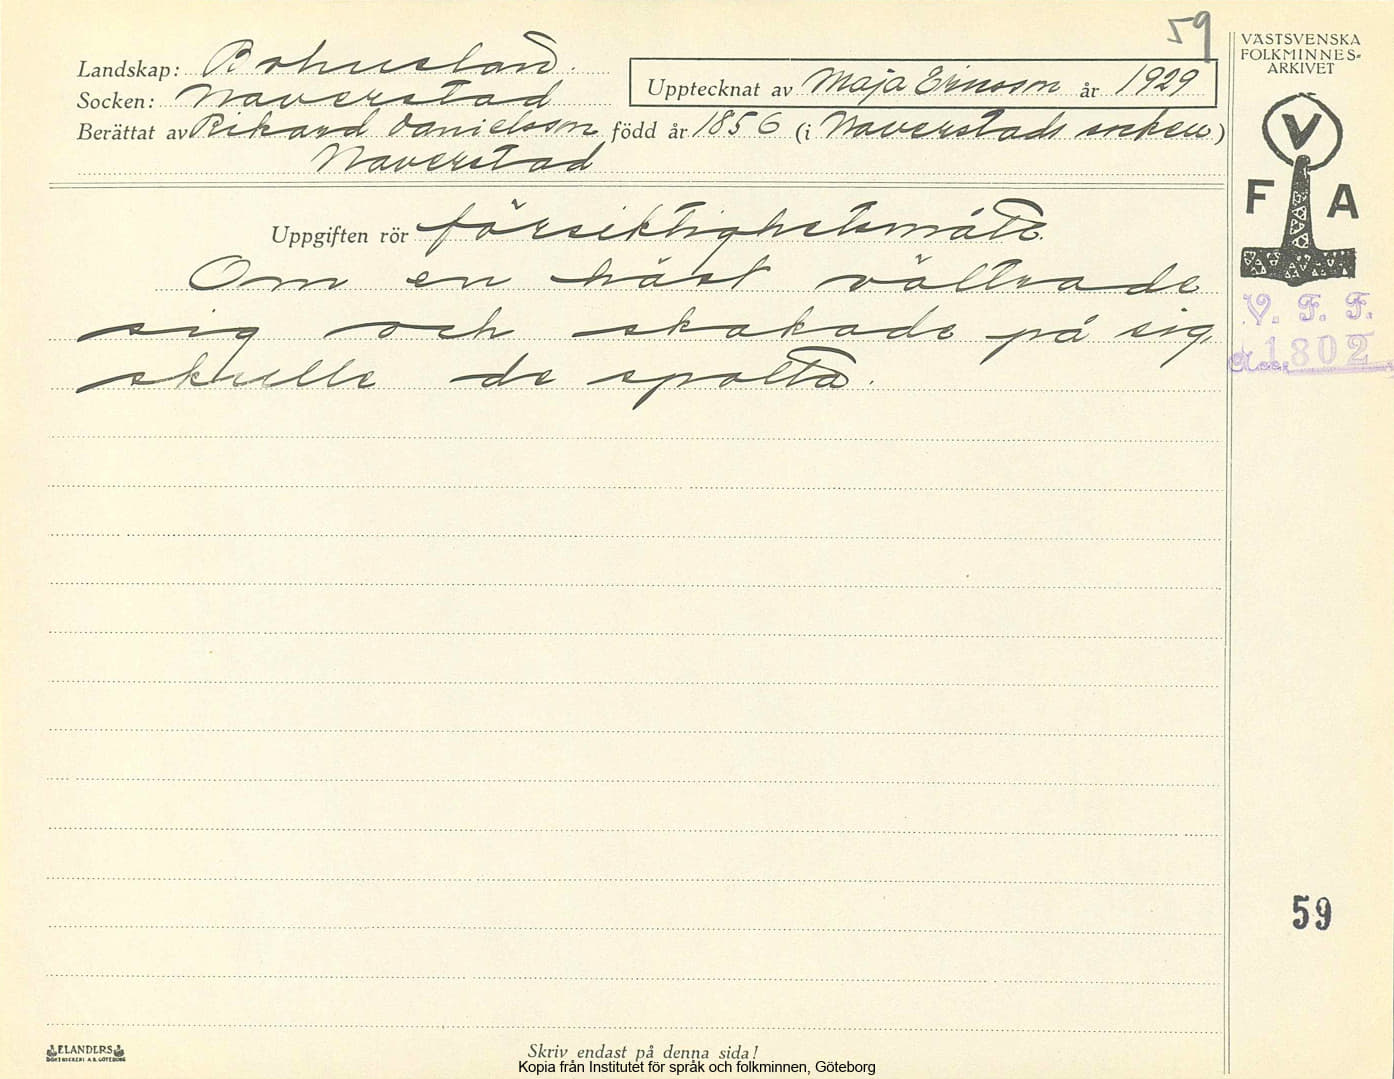 59
Landskap: Bohuslän.
Socken: Naverstad
Upptecknat av Maja Ericsson år 1929
Berättat av Rikard Danielsson född år 1856 (i Naverstads socken)
Naverstad
VÄSTSVENSKA
FOLKMINNES-
ARKIVET
V
F A
Uppgiften rör försiktighetsmått.
Om en häst vältrade
sig och skakade på sig,
skulle de spotta.
V. F. F.
1802
59
ELANDERS
BOKTRYCKERI A.B. GÖTEBORG
Skriv endast på denna sida!
Kopia från Institutet för språk och folkminnen, Göteborg